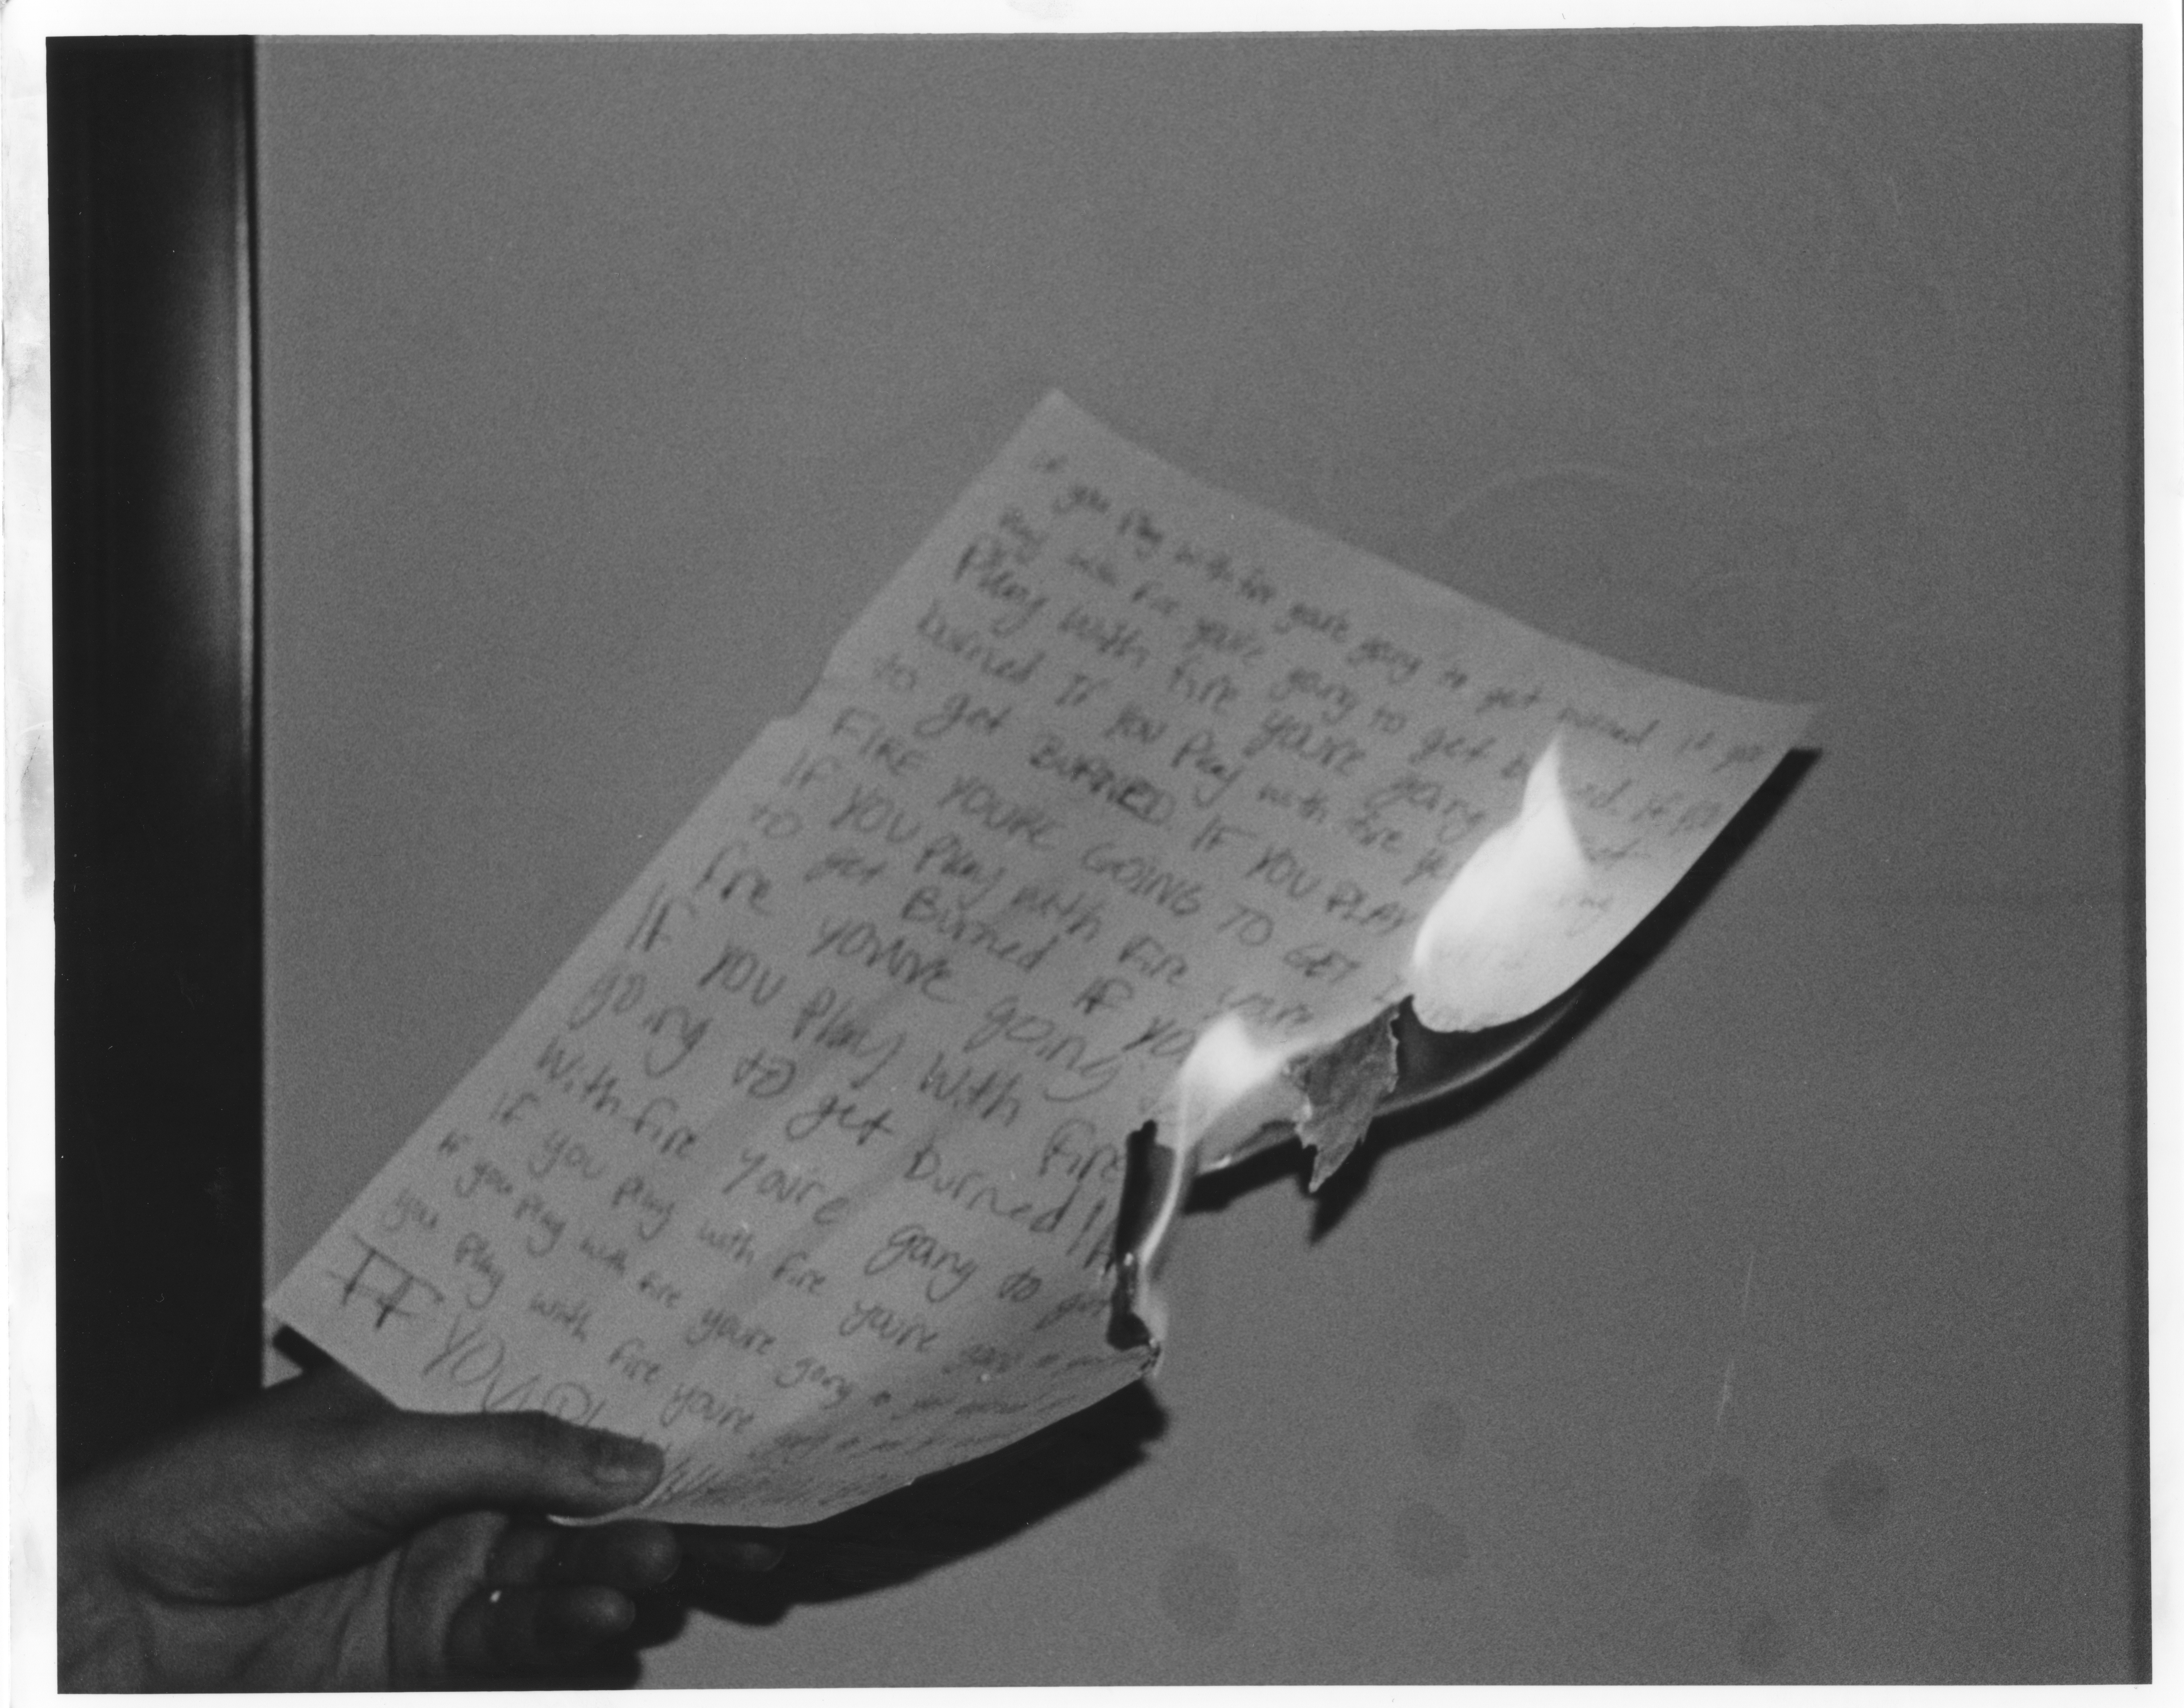 if you play with fire you're going to get burned if you
play with fire you're going to get b ned if
Play with fire you're going get
burned If you Play with fire yo
to get BURNED. IF YOU PLAY
FIRE YOU'RE GOING TO GET
IF YOU Play with Fire you're
to get Burned IF YO
fire you're going
IF YOU Play with fire
going to get burned If
With fire you're going to get
If you play with fire you're going to
If you play with fire you're going to get
you play with fire you're
IF YOU PL